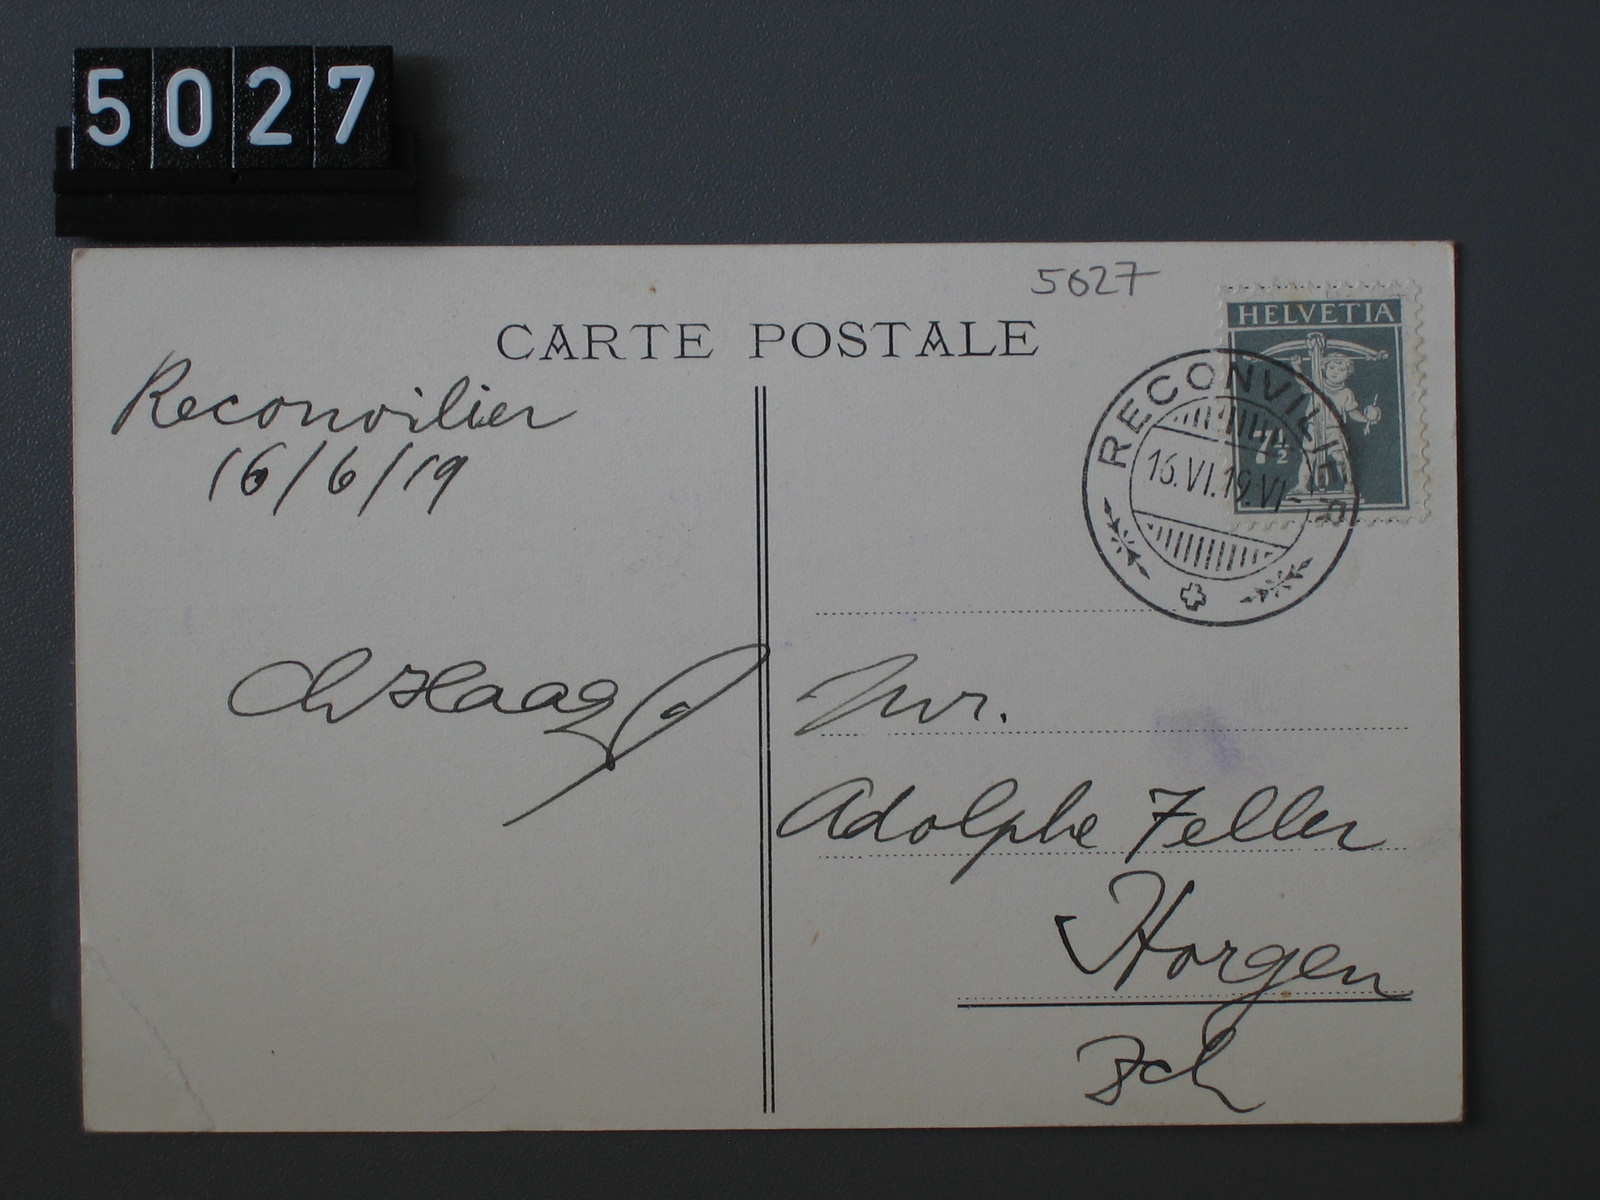 5027
5027
CARTE POSTALE
HELVETIA
7½
RECONVILIER
16.VI.19.VI-
Reconvilier
16/6/19
Ch Haag
Mr.
Adolphe Feller
Horgen
Zch